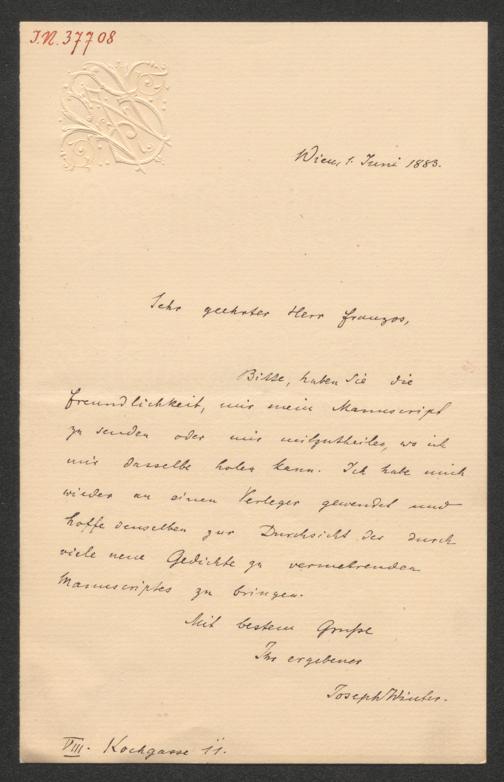 I.N. 37708
Wien, 1. Juni 1883.
Sehr geehrter Herr Franzos,
Bitte, haben Sie die
Freundlichkeit, mir mein Manuscript
zu senden oder mir mitzutheilen, wo ich
mir dasselbe holen kann. Ich habe mich
wieder an einen Verleger gewendet und
hoffe denselben zur Durchsicht des durch
viele neue Gedichte zu vermehrenden
Manuscriptes zu bringen.
Mit bestem Gruße
Ihr ergebener
Joseph Winter.
VIII. Kochgasse 11.